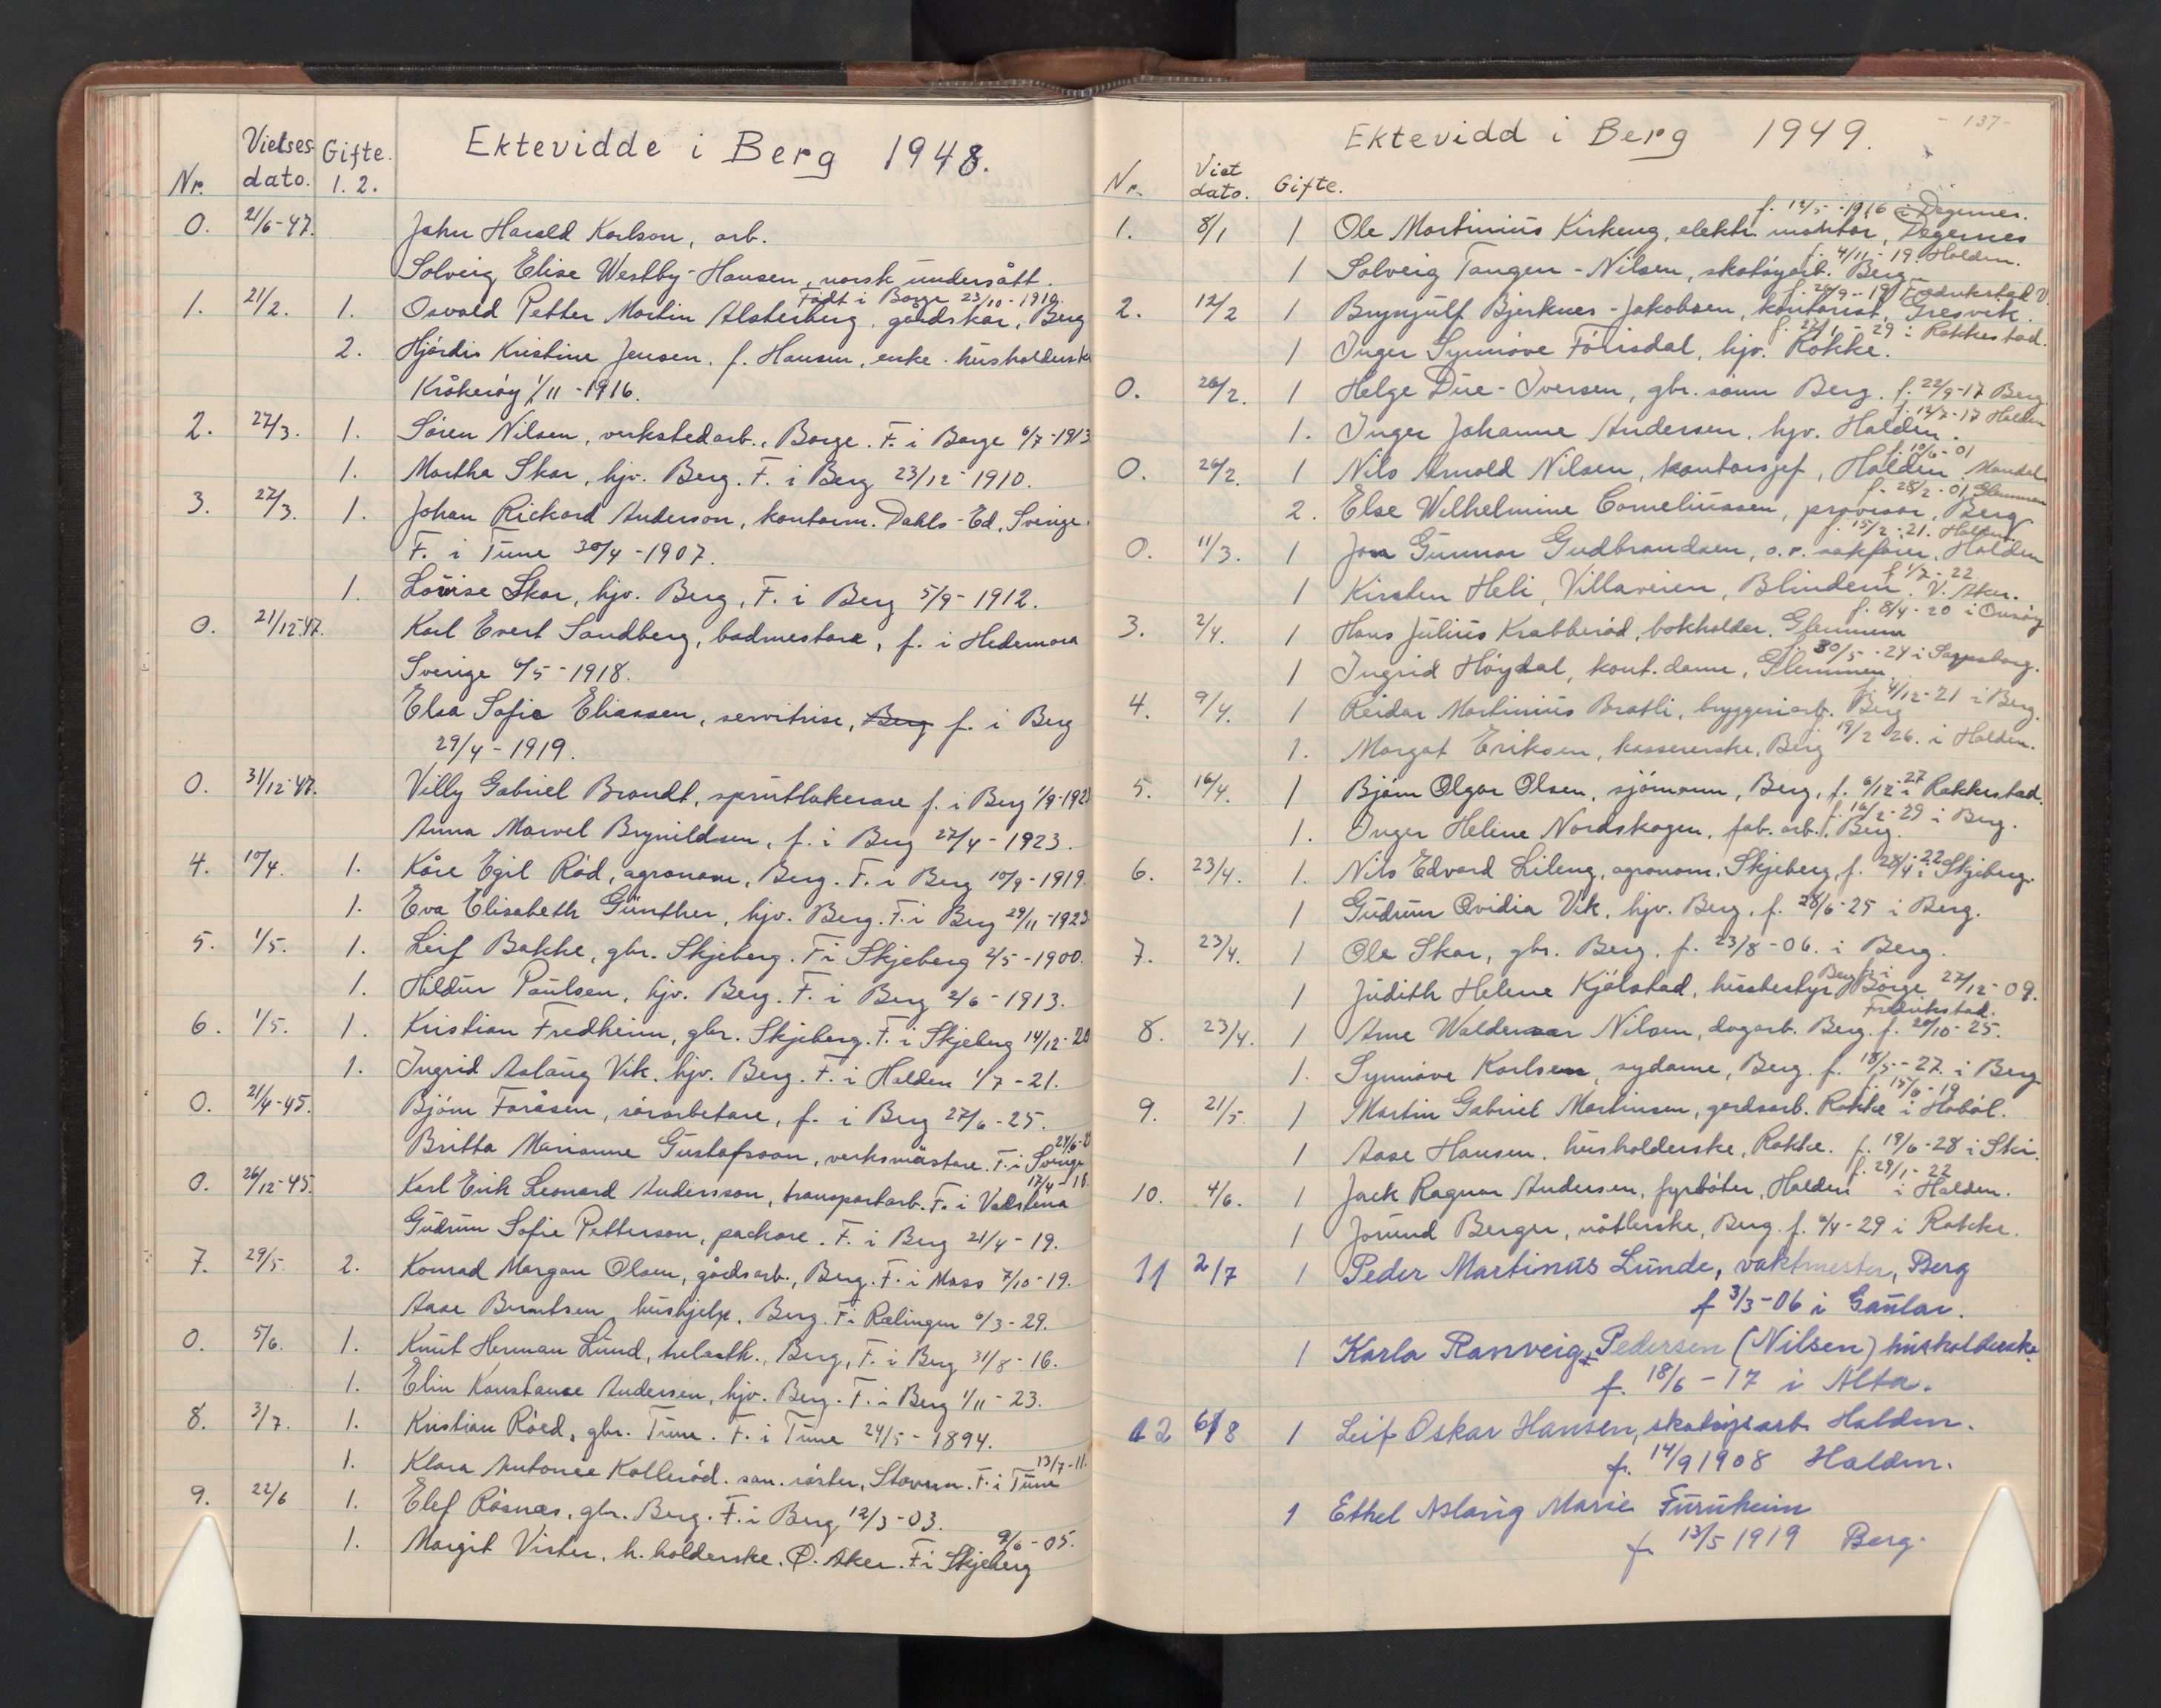 Ektevidde i Berg 1948.
Nr. Vielses dato. Gifte. 1. 2.
0. 21/6-47. John Harald Karlson, arb.
Solveig Elise Westby-Hansen, norsk undersått.
Født i Borge 23/10-1919.
1. 21/2. 1. Osvald Petter Martin Alsterberg, gårdskar, Berg
2. Hjördis Kristine Jensen, f. Hansen, enke. husholderske
Kråkeröy 1/11-1916.
2. 27/3. 1. Sören Nilsen, verkstedarb., Borge. F. i Borge 6/7-1913
1. Martha Skar, hjv. Berg. F. i Berg 23/12-1910.
3. 27/3. 1. Johan Rickard Anderson, kontorm. Dahls-Ed, Sverige.
F. i Tune 30/4-1907.
1. Lovise Skar, hjv. Berg, F. i Berg 5/9-1912.
0. 21/12-47. Karl Evert Sandberg, badmestare, f. i Hedemora
Sverige 6/5-1918.
Elsa Sofie Eliassen, servitrise, Berg f. i Berg
29/4-1919.
0. 31/12-47. Villy Gabriel Brandt, sprutlakerare f. i Berg
Anna Marvel Brynildsen, f. i Berg 27/4-1923.
4. 10/4. 1. Kåre Egil Röd, agronom, Berg. F. i Berg 10/9-1919.
1. Eva Elisabeth Günther, hjv. Berg. F. i Berg 29/11-1923
5. 1/5. 1. Leif Bakke, gbr. Skjeberg. F. i Skjeberg 2/5-1900.
1. Hildur Paulsen, hjv. Berg. F. i Berg 2/6-1913.
6. 1/5. 1. Kristian Fredheim, gbr. Skjeberg. F. i Skjeberg 14/12-20
1. Ingrid Aslaug Vik, hjv. Berg. F. i Halden 1/7-21.
0. 21/4-45. Björn Foråsen, rörarbetare, f. i Berg 27/6-25.
Britta Marianne Gustafsson, verksmästare. F. i Sverige
0. 26/12-45. Karl Erik Leonard Andersson, transportarb. F. i Vadstena 17/4-18.
Gudrun Sofie Petterson, packare. F. i Berg 21/4-19.
7. 29/5. 2. Konrad Morgan Olsen, gårdsarb., Berg. F. i Moss 7/10-19.
Aase Berntsen hushjelp, Berg. F. i Rælingen 6/3-29.
0. 5/6. 1. Knut Herman Lund, trelasth., Berg, F. i Berg 31/8-16.
1. Elin Konstanse Andersen, hjv. Berg. F. i Berg 1/11-23.
8. 3/7. 1. Kristian Röed, gbr. Tune. F. i Tune 24/5-1894.
1. Klara Antonee Kalleröd, san. söster, Stavern. F. i Tune 13/7-11.
9. 22/6 1. Elef Rösnæs, gbr. Berg. F. i Berg 12/3-03.
1. Margit Vister, h. holderske. Ö. Aker. F. i Skjeberg 9/6-05.
-137-
Ektevidd i Berg 1949.
Nr. Viet dato. Gifte.
f. 12/5-1916 i Degernes.
1. 8/1 1 Ole Martinius Kirkeng, elektr. montör, Degernes
f. 4/11-19 Halden.
1 Solveig Tangen-Nilsen, skotöyarb. Berg
f. 20/9-19 Fredrikstad V.
2. 12/2 1 Brynjulf Bjerknes-Jakobsen, kontorist, Gresvik.
f. 27/1-29 i Rakkestad.
1 Inger Synnöve Förrisdal, hjv. Rokke.
0. 26/2. 1 Helge Due-Iversen, gbr. sönn Berg. f. 22/9-17 Berg
f. 12/7-17 Halden
1. Inger Johanne Andersen, hjv. Halden.
f. 10/6-01
0. 26/2. 1 Nils Arnold Nilsen, kontorsjef, Halden. Mandal
f. 28/2-01 Glemmen
2. Else Wilhelmine Corneliussen, provisor, Berg
f. 15/2-21. Halden
0. 11/3. 1 Jon Gunnar Gudbrandsen, o.r. sakförer, Halden
f. 1/7-22
1 Kirsten Heli, Villaveien, Blindern. V. Aker.
f. 8/4-20 i Onsöy
3. 2/4. 1 Hans Julius Krabberöd, bokholder. Glemmen
f. 30/5-24 i Sarpsborg.
1 Ingrid Höydal, kont. dame, Glemmen.
f. 4/12-21 i Berg.
4. 9/4. 1 Reidar Martinius Bratli, bryggeriarb. Berg
1. Margot Eriksen, kassererske, Berg 19/2-26. i Halden.
5. 16/4. 1 Björn Olgar Olsen, sjömann, Berg, f. 6/12-27 i Rakkestad.
f. 16/2-29 i Berg.
1. Inger Heline Nordskogen, fab. arb., Berg.
6. 23/4. 1. Nils Edvard Lileng, agronom, Skjeberg, f. 28/4-22 i Skjeberg.
1 Gudrun Ovidia Vik, hjv. Berg, f. 28/6-25 i Berg.
7. 23/4. 1 Ole Skar, gbr. Berg, f. 23/8-06. i Berg.
1 Judith Helene Kjölstad, husbestyr. Berg f. i Borge 27/12-09.
Fredrikstad.
8. 23/4. 1 Arne Waldemar Nilsen, dagarb. Berg. f. 20/10-25.
1. Synnöve Karlsen, sydame, Berg. f. 18/5-27. i Berg
f. 15/6-19
9. 21/5. 1 Martin Gabriel Martinsen, gardsarb. Rokke i Hobøl.
1 Aase Hansen, husholderske, Rokke. f. 19/6-28 i Ski.
f. 29/1-22
10. 4/6. 1 Jack Ragnar Andersen, fyrböter, Halden i Halden.
1 Jorund Berger, nåtlerske, Berg. f. 6/4-29 i Rokke.
11 2/7 1 Peder Martinus Lunde, vaktmester, Berg
f 3/3-06 i Gaular.
1 Karla Ranveig Pedersen (Nilsen) husholderske
f. 18/6-17 i Alta.
12 6/8 1 Leif Oskar Hansen, skotöyarb. Halden.
f. 14/9 1908 Halden.
1 Ethel Aslaug Marie Furuheim
f. 13/5 1919 Berg.